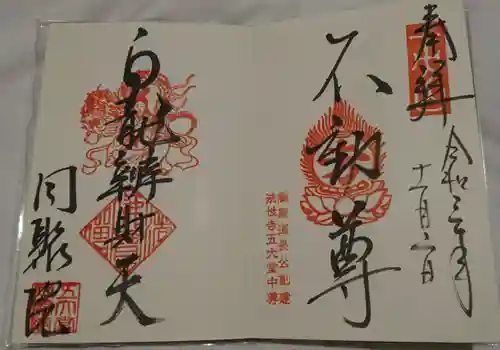 奉拝
令和三年
十一月
不動尊
道長公創建
法性寺五大堂中尊
白龍辨財天
同聚院